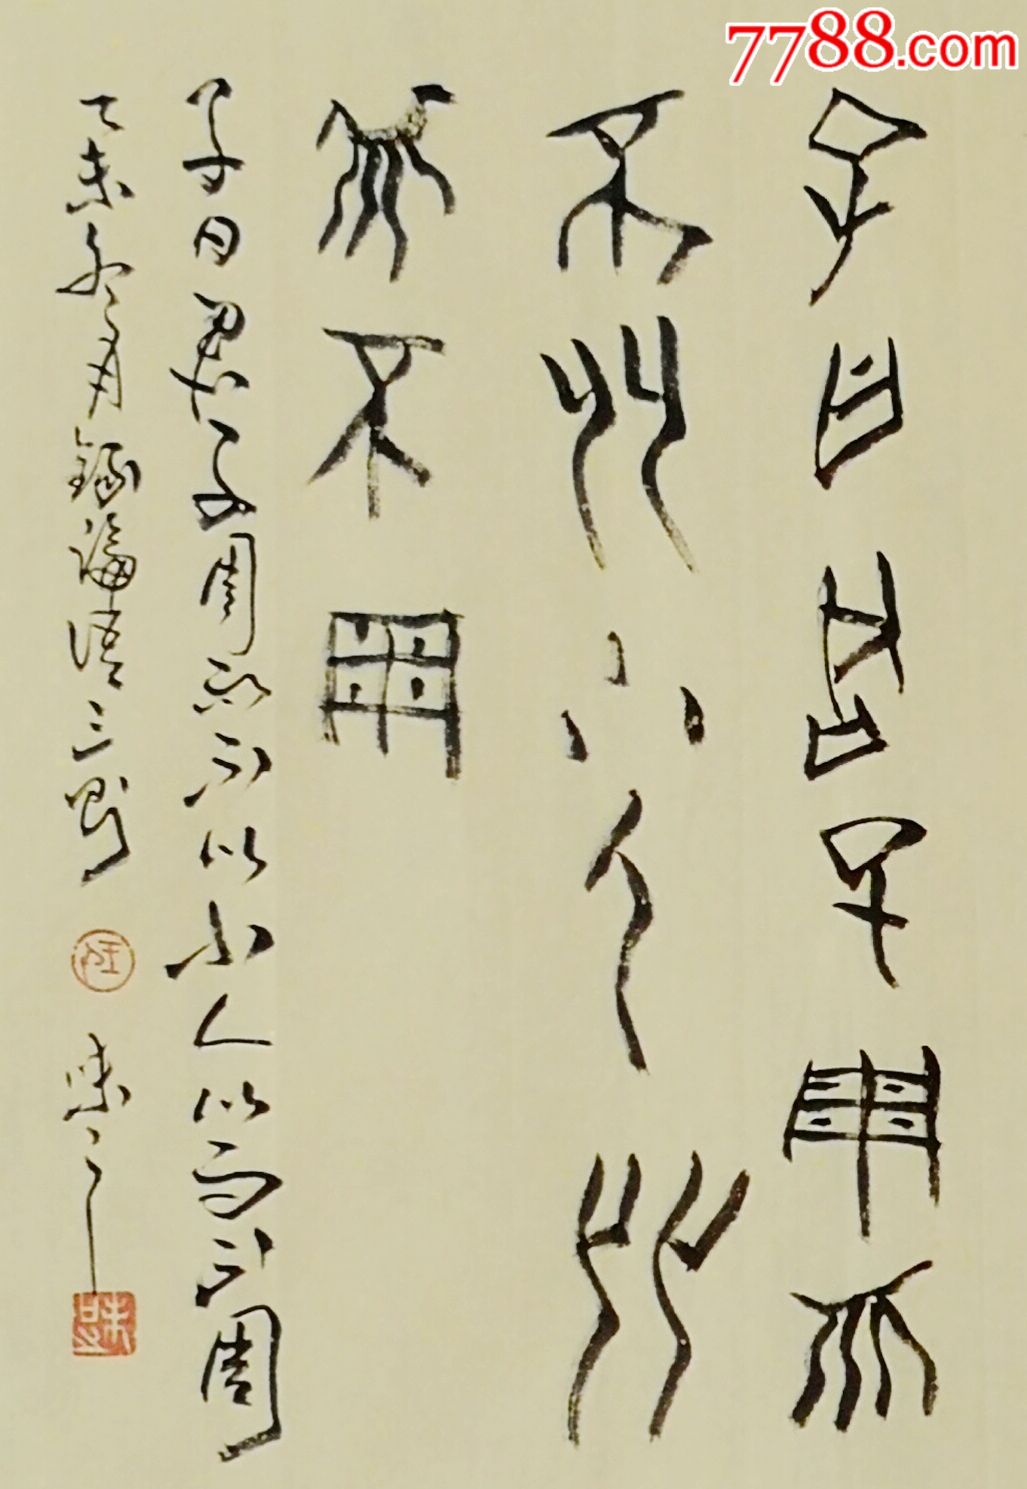 7788.com
子曰君子周而
不比小人比
而不周
子曰君子周而不比小人比而不周
乙未冬月錄論語三則 味之